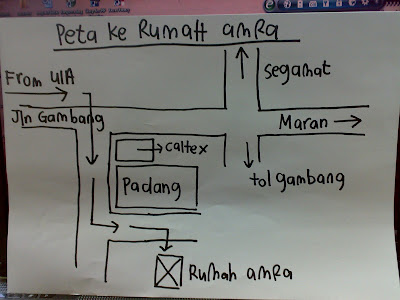 Peta ke Rumah amra
From UIA
segamat
Jln Gambang
Maran
caltex
Padang
tol gambang
Rumah amra